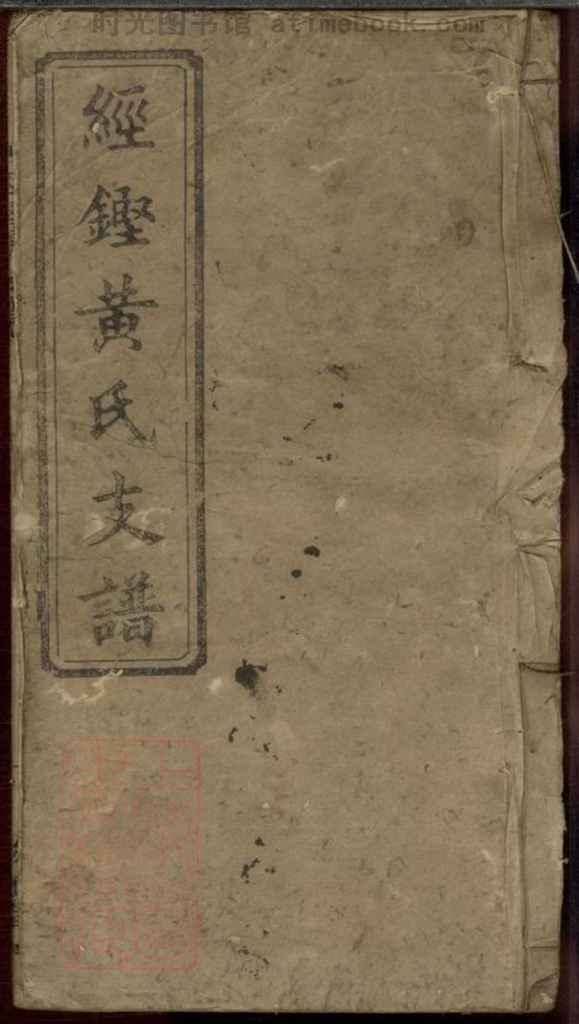 时光图书馆 atimebook.com
經鏗黃氏支譜